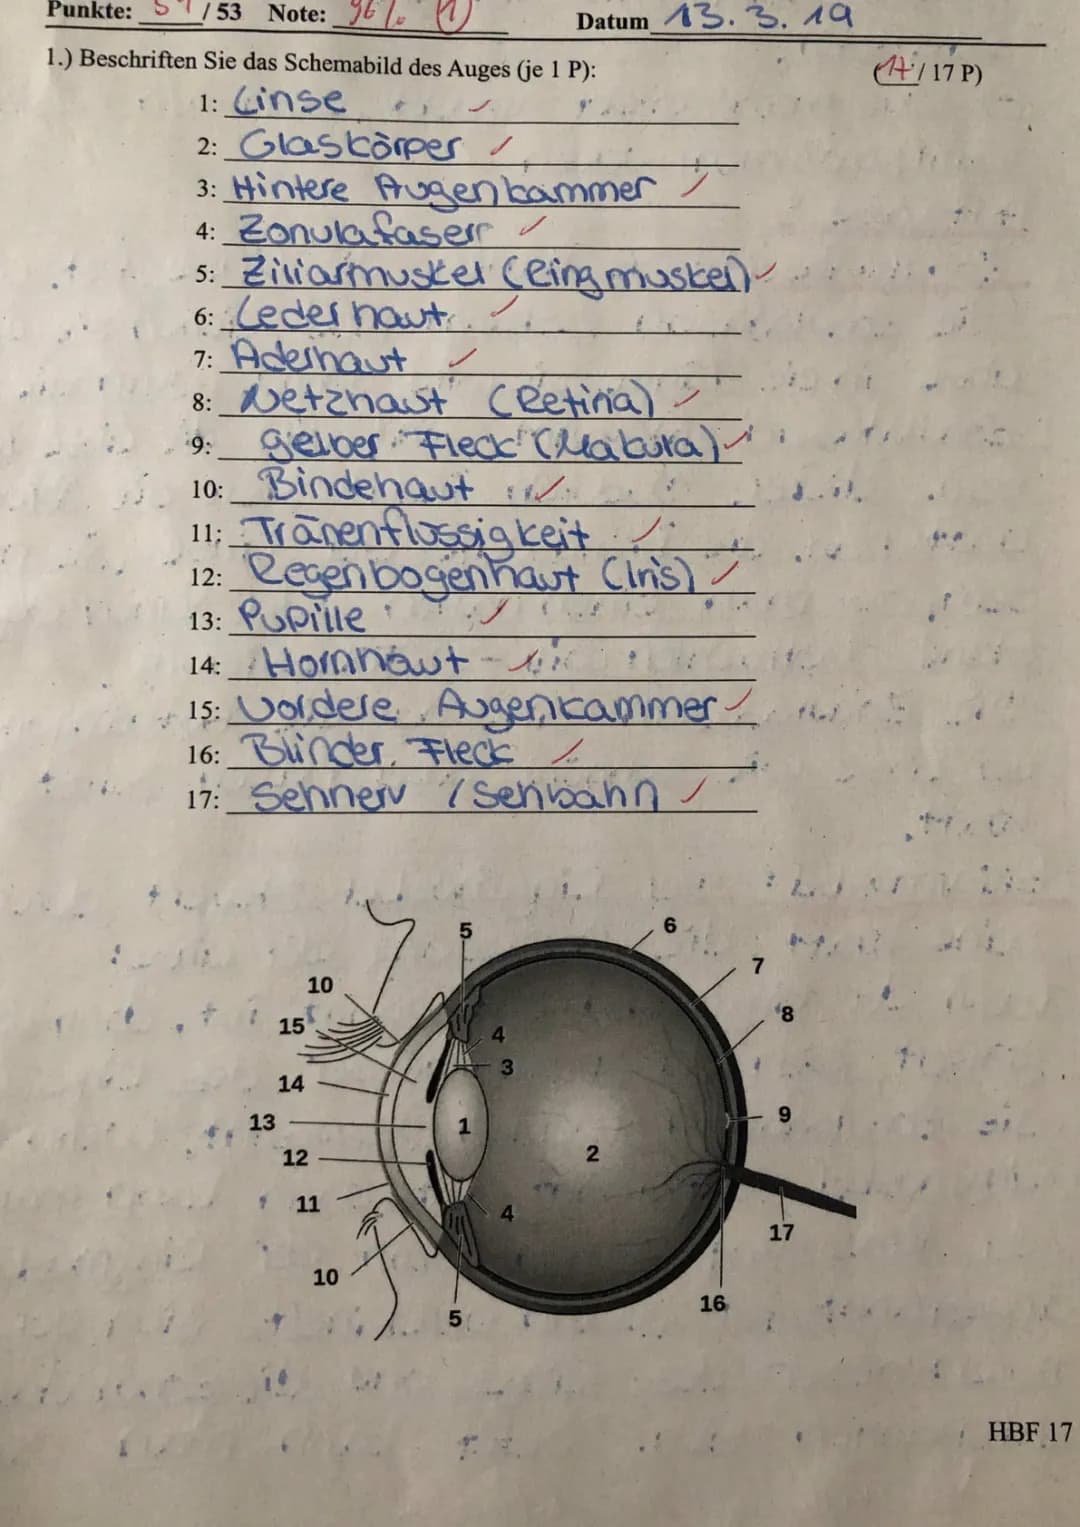 Punkte: 51 / 53 Note: 96% (1) Datum 13.3.19
1.) Beschriften Sie das Schemabild des Auges (je 1 P): (17 / 17 P)
1: Linse
2: Glaskörper
3: Hintere Augenkammer
4: Zonulafasern
5: Ziliarmuskel (Ringmuskel)
6: Lederhaut
7: Aderhaut
8: Netzhaut (Retina)
9: gelber Fleck (Makula)
10: Bindehaut
11: Tränenflüssigkeit
12: Regenbogenhaut (Iris)
13: Pupille
14: Hornhaut
15: Vordere Augenkammer
16: Blinder Fleck
17: Sehnerv / Sehbahn
5
6
7
10
8
15
4
3
14
9
13
1
2
12
11
4
17
10
16
5
HBF 17